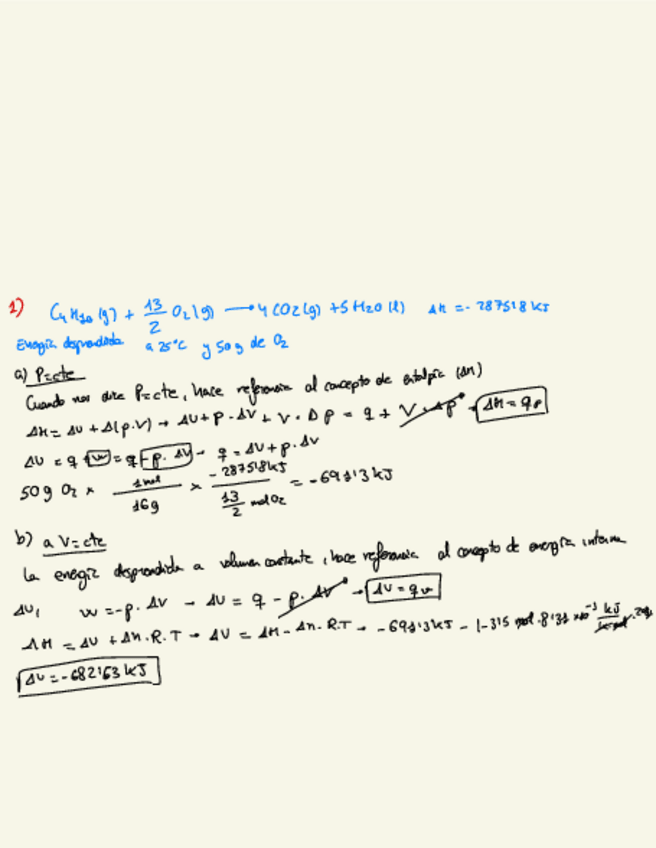 1) C4H10 (g) + 13/2 O2 (g) → 4 CO2 (g) + 5 H2O (l) ΔH = -2875'8 kJ
Energía desprendida a 25°C y 50g de O2
a) P=cte
Cuando nos dice P=cte, hace referencia al concepto de entalpía (ΔH)
ΔH = ΔU + Δ(p·V) → ΔU + p·ΔV + V·Δp = q + V·Δp → ΔH = qp
ΔU = q + w = q - p·ΔV → q = ΔU + p·ΔV
50 g O2 × 1 mol/16g × -2875'8 kJ/(13/2 mol O2) = -691'3 kJ
b) a V=cte
La energía desprendida a volumen constante, hace referencia al concepto de energía interna
ΔU, w = -p·ΔV → ΔU = q - p·ΔV → ΔU = qv
ΔH = ΔU + Δn·R·T → ΔU = ΔH - Δn·R·T → -691'3 kJ - (-3'5 mol · 8'31 ×10⁻³ kJ/k·mol
ΔU = -682'63 kJ